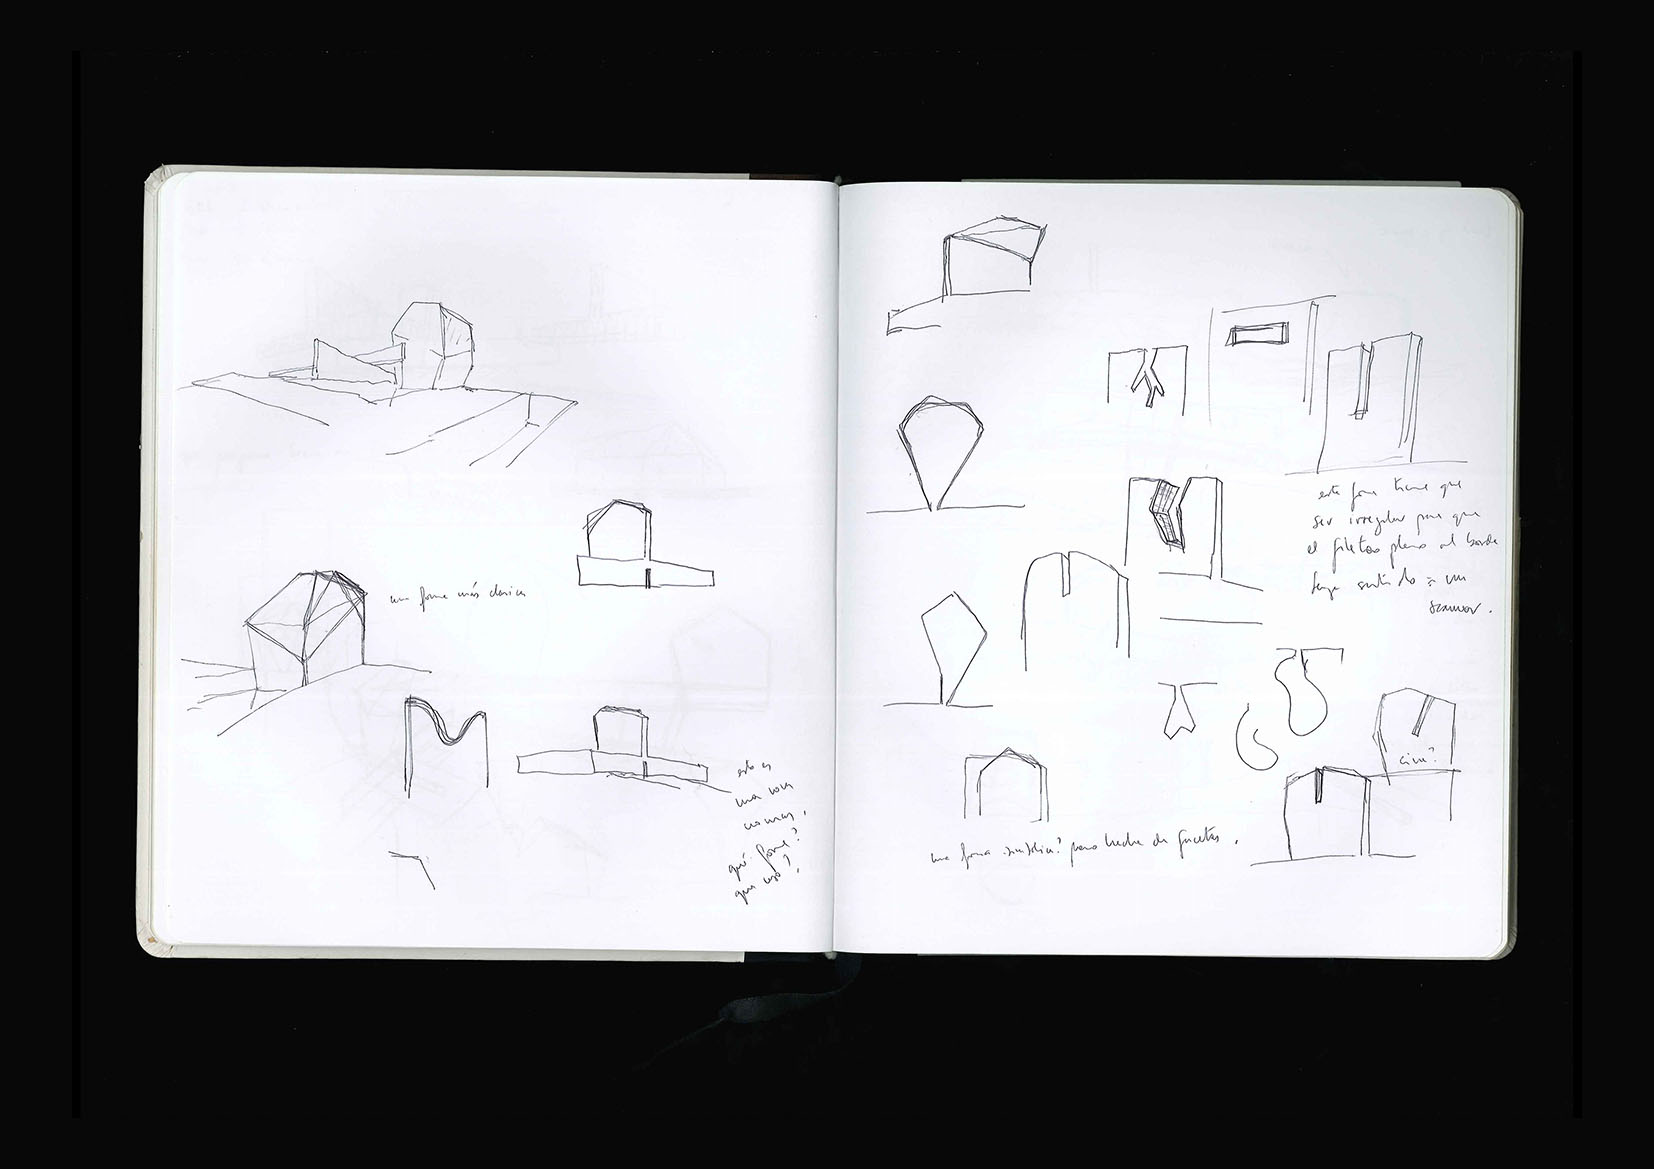 una forma más clásica
esto es
una cosa
no mas.
qué forma?
que uso?
esta forma tiene que
ser irregular para que
el pleno al borde
tenga sentido = un
scanner.
cim?
una forma simbólica? pero hecha de facetas.